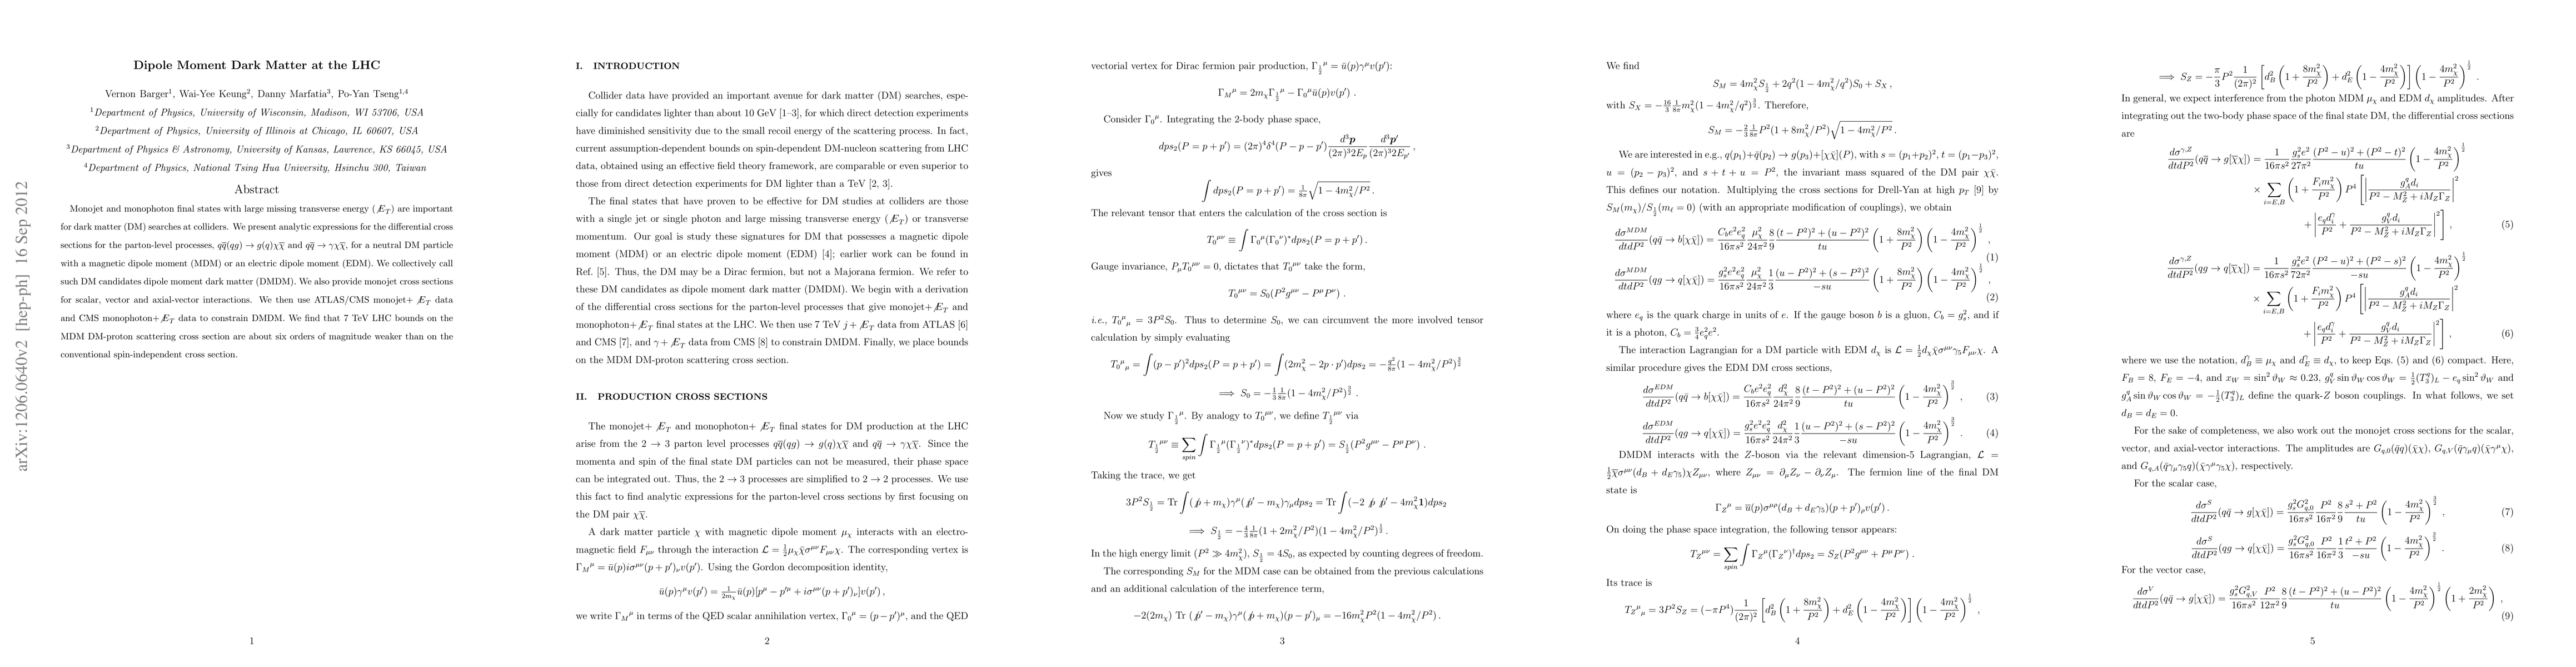 arXiv:1206.0640v2 [hep-ph] 16 Sep 2012
Dipole Moment Dark Matter at the LHC
Vernon Barger¹, Wai-Yee Keung², Danny Marfatia³, Po-Yan Tseng¹,⁴
¹Department of Physics, University of Wisconsin, Madison, WI 53706, USA
²Department of Physics, University of Illinois at Chicago, IL 60607, USA
³Department of Physics & Astronomy, University of Kansas, Lawrence, KS 66045, USA
⁴Department of Physics, National Tsing Hua University, Hsinchu 300, Taiwan
Abstract
Monojet and monophoton final states with large missing transverse energy (E̸_T) are important
for dark matter (DM) searches at colliders. We present analytic expressions for the differential cross
sections for the parton-level processes, qq̄(qg) → g(q)χχ̄ and qq̄ → γχχ̄, for a neutral DM particle
with a magnetic dipole moment (MDM) or an electric dipole moment (EDM). We collectively call
such DM candidates dipole moment dark matter (DMDM). We also provide monojet cross sections
for scalar, vector and axial-vector interactions. We then use ATLAS/CMS monojet+ E̸_T data
and CMS monophoton+E̸_T data to constrain DMDM. We find that 7 TeV LHC bounds on the
MDM DM-proton scattering cross section are about six orders of magnitude weaker than on the
conventional spin-independent cross section.
1
I. INTRODUCTION
Collider data have provided an important avenue for dark matter (DM) searches, espe-
cially for candidates lighter than about 10 GeV [1–3], for which direct detection experiments
have diminished sensitivity due to the small recoil energy of the scattering process. In fact,
current assumption-dependent bounds on spin-dependent DM-nucleon scattering from LHC
data, obtained using an effective field theory framework, are comparable or even superior to
those from direct detection experiments for DM lighter than a TeV [2, 3].
The final states that have proven to be effective for DM studies at colliders are those
with a single jet or single photon and large missing transverse energy (E̸_T) or transverse
momentum. Our goal is study these signatures for DM that possesses a magnetic dipole
moment (MDM) or an electric dipole moment (EDM) [4]; earlier work can be found in
Ref. [5]. Thus, the DM may be a Dirac fermion, but not a Majorana fermion. We refer to
these DM candidates as dipole moment dark matter (DMDM). We begin with a derivation
of the differential cross sections for the parton-level processes that give monojet+E̸_T and
monophoton+E̸_T final states at the LHC. We then use 7 TeV j + E̸_T data from ATLAS [6]
and CMS [7], and γ + E̸_T data from CMS [8] to constrain DMDM. Finally, we place bounds
on the MDM DM-proton scattering cross section.
II. PRODUCTION CROSS SECTIONS
The monojet+ E̸_T and monophoton+ E̸_T final states for DM production at the LHC
arise from the 2 → 3 parton level processes qq̄(qg) → g(q)χχ̄ and qq̄ → γχχ̄. Since the
momenta and spin of the final state DM particles can not be measured, their phase space
can be integrated out. Thus, the 2 → 3 processes are simplified to 2 → 2 processes. We use
this fact to find analytic expressions for the parton-level cross sections by first focusing on
the DM pair χχ̄.
A dark matter particle χ with magnetic dipole moment μ_χ interacts with an electro-
magnetic field F_μν through the interaction ℒ = ½μ_χ χ̄σ^μν F_μν χ. The corresponding vertex is
Γ_M^μ = ū(p)iσ^μν(p + p′)_ν v(p′). Using the Gordon decomposition identity,
ū(p)γ^μ v(p′) = 1/(2m_χ) ū(p)[p^μ − p′^μ + iσ^μν(p + p′)_ν]v(p′) ,
we write Γ_M^μ in terms of the QED scalar annihilation vertex, Γ_0^μ = (p − p′)^μ, and the QED
2
vectorial vertex for Dirac fermion pair production, Γ_½^μ = ū(p)γ^μ v(p′):
Γ_M^μ = 2m_χ Γ_½^μ − Γ_0^μ ū(p)v(p′) .
Consider Γ_0^μ. Integrating the 2-body phase space,
dps₂(P = p + p′) = (2π)⁴δ⁴(P − p − p′) d³p/((2π)³2E_p) d³p′/((2π)³2E_p′) ,
gives
∫ dps₂(P = p + p′) = 1/(8π) √(1 − 4m_χ²/P²) .
The relevant tensor that enters the calculation of the cross section is
T_0^μν ≡ ∫ Γ_0^μ(Γ_0^ν)* dps₂(P = p + p′) .
Gauge invariance, P_μ T_0^μν = 0, dictates that T_0^μν take the form,
T_0^μν = S_0(P²g^μν − P^μP^ν) .
i.e., T_0^μ_μ = 3P²S_0. Thus to determine S_0, we can circumvent the more involved tensor
calculation by simply evaluating
T_0^μ_μ = ∫(p − p′)²dps₂(P = p + p′) = ∫(2m_χ² − 2p · p′)dps₂ = −q²/(8π) (1 − 4m_χ²/P²)^(3/2)
⟹ S_0 = −(1/3)(1/8π)(1 − 4m_χ²/P²)^(3/2) .
Now we study Γ_½^μ. By analogy to T_0^μν, we define T_½^μν via
T_½^μν ≡ Σ_spin ∫ Γ_½^μ(Γ_½^ν)* dps₂(P = p + p′) = S_½(P²g^μν − P^μP^ν) .
Taking the trace, we get
3P²S_½ = Tr ∫(p̸ + m_χ)γ^μ(p̸′ − m_χ)γ_μ dps₂ = Tr ∫(−2 p̸ p̸′ − 4m_χ² 1)dps₂
⟹ S_½ = −(4/3)(1/8π)(1 + 2m_χ²/P²)(1 − 4m_χ²/P²)^(1/2) .
In the high energy limit (P² ≫ 4m_χ²), S_½ = 4S_0, as expected by counting degrees of freedom.
The corresponding S_M for the MDM case can be obtained from the previous calculations
and an additional calculation of the interference term,
−2(2m_χ) Tr (p̸′ − m_χ)γ^μ(p̸ + m_χ)(p − p′)_μ = −16m_χ²P²(1 − 4m_χ²/P²) .
3
We find
S_M = 4m_χ²S_½ + 2q²(1 − 4m_χ²/q²)S_0 + S_X ,
with S_X = −(16/3)(1/8π)m_χ²(1 − 4m_χ²/q²)^(3/2). Therefore,
S_M = −(2/3)(1/8π)P²(1 + 8m_χ²/P²)√(1 − 4m_χ²/P²) .
We are interested in e.g., q(p₁)+q̄(p₂) → g(p₃)+[χχ̄](P), with s = (p₁+p₂)², t = (p₁−p₃)²,
u = (p₂ − p₃)², and s + t + u = P², the invariant mass squared of the DM pair χχ̄.
This defines our notation. Multiplying the cross sections for Drell-Yan at high p_T [9] by
S_M(m_χ)/S_½(m_ℓ = 0) (with an appropriate modification of couplings), we obtain
dσ^MDM/dtdP² (qq̄ → b[χχ̄]) = (C_b e²e_q²/16πs²) (μ_χ²/24π²) (8/9) ((t − P²)² + (u − P²)²)/(tu) (1 + 8m_χ²/P²) (1 − 4m_χ²/P²)^(1/2) , (1)
dσ^MDM/dtdP² (qg → q[χχ̄]) = (g_s²e²e_q²/16πs²) (μ_χ²/24π²) (1/3) ((u − P²)² + (s − P²)²)/(−su) (1 + 8m_χ²/P²) (1 − 4m_χ²/P²)^(1/2) , (2)
where e_q is the quark charge in units of e. If the gauge boson b is a gluon, C_b = g_s², and if
it is a photon, C_b = ¾e_q²e².
The interaction Lagrangian for a DM particle with EDM d_χ is ℒ = ½d_χ χ̄σ^μν γ₅F_μν χ. A
similar procedure gives the EDM DM cross sections,
dσ^EDM/dtdP² (qq̄ → b[χχ̄]) = (C_b e²e_q²/16πs²) (d_χ²/24π²) (8/9) ((t − P²)² + (u − P²)²)/(tu) (1 − 4m_χ²/P²)^(3/2) , (3)
dσ^EDM/dtdP² (qg → q[χχ̄]) = (g_s²e²e_q²/16πs²) (d_χ²/24π²) (1/3) ((u − P²)² + (s − P²)²)/(−su) (1 − 4m_χ²/P²)^(3/2) . (4)
DMDM interacts with the Z-boson via the relevant dimension-5 Lagrangian, ℒ =
½χ̄σ^μν(d_B + d_Eγ₅)χZ_μν, where Z_μν = ∂_μZ_ν − ∂_νZ_μ. The fermion line of the final DM
state is
Γ_Z^μ = ū(p)σ^μρ(d_B + d_Eγ₅)(p + p′)_ρ v(p′) .
On doing the phase space integration, the following tensor appears:
T_Z^μν = Σ_spin ∫ Γ_Z^μ(Γ_Z^ν)†dps₂ = S_Z(P²g^μν + P^μP^ν) .
Its trace is
T_Z^μ_μ = 3P²S_Z = (−πP⁴) 1/(2π)² [d_B²(1 + 8m_χ²/P²) + d_E²(1 − 4m_χ²/P²)] (1 − 4m_χ²/P²)^(1/2) ,
4
⟹ S_Z = −(π/3)P² 1/(2π)² [d_B²(1 + 8m_χ²/P²) + d_E²(1 − 4m_χ²/P²)] (1 − 4m_χ²/P²)^(1/2) .
In general, we expect interference from the photon MDM μ_χ and EDM d_χ amplitudes. After
integrating out the two-body phase space of the final state DM, the differential cross sections
are
dσ^γ,Z/dtdP² (qq̄ → g[χ̄χ]) = (1/16πs²) (g_s²e²/27π²) ((P² − u)² + (P² − t)²)/(tu) (1 − 4m_χ²/P²)^(1/2)
× Σ_{i=E,B} (1 + F_i m_χ²/P²) P⁴ [ |g_A^q d_i/(P² − M_Z² + iM_ZΓ_Z)|²
+ |e_q d_i^γ/P² + g_V^q d_i/(P² − M_Z² + iM_ZΓ_Z)|² ] , (5)
dσ^γ,Z/dtdP² (qg → q[χ̄χ]) = (1/16πs²) (g_s²e²/72π²) ((P² − u)² + (P² − s)²)/(−su) (1 − 4m_χ²/P²)^(1/2)
× Σ_{i=E,B} (1 + F_i m_χ²/P²) P⁴ [ |g_A^q d_i/(P² − M_Z² + iM_ZΓ_Z)|²
+ |e_q d_i^γ/P² + g_V^q d_i/(P² − M_Z² + iM_ZΓ_Z)|² ] , (6)
where we use the notation, d_B^γ ≡ μ_χ and d_E^γ ≡ d_χ, to keep Eqs. (5) and (6) compact. Here,
F_B = 8, F_E = −4, and x_W = sin²ϑ_W ≈ 0.23, g_V^q sin ϑ_W cos ϑ_W = ½(T_3^q)_L − e_q sin²ϑ_W and
g_A^q sin ϑ_W cos ϑ_W = −½(T_3^q)_L define the quark-Z boson couplings. In what follows, we set
d_B = d_E = 0.
For the sake of completeness, we also work out the monojet cross sections for the scalar,
vector, and axial-vector interactions. The amplitudes are G_q,0(q̄q)(χ̄χ), G_q,V(q̄γ_μq)(χ̄γ^μχ),
and G_q,A(q̄γ_μγ₅q)(χ̄γ^μγ₅χ), respectively.
For the scalar case,
dσ^S/dtdP² (qq̄ → g[χχ̄]) = (g_s²G_q,0²/16πs²) (P²/16π²) (8/9) (s² + P²)/(tu) (1 − 4m_χ²/P²)^(3/2) , (7)
dσ^S/dtdP² (qg → q[χχ̄]) = (g_s²G_q,0²/16πs²) (P²/16π²) (1/3) (t² + P²)/(−su) (1 − 4m_χ²/P²)^(3/2) . (8)
For the vector case,
dσ^V/dtdP² (qq̄ → g[χχ̄]) = (g_s²G_q,V²/16πs²) (P²/12π²) (8/9) ((t − P²)² + (u − P²)²)/(tu) (1 − 4m_χ²/P²)^(1/2) (1 + 2m_χ²/P²) , (9)
5